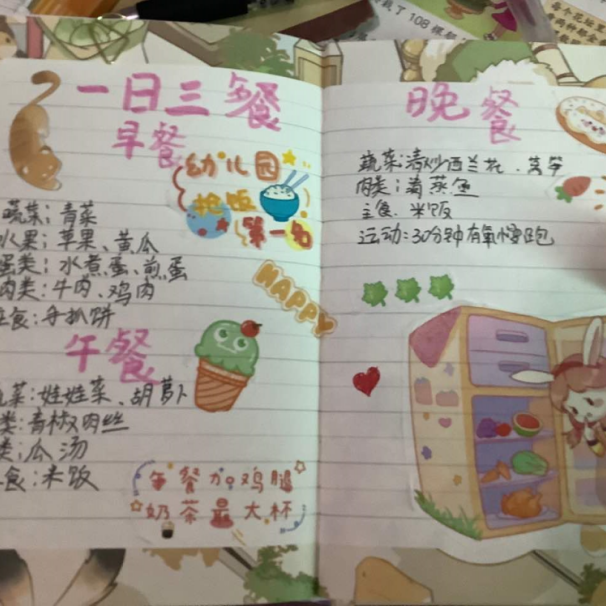 一日三餐
早餐
幼儿园
抢饭
第一名
蔬菜：青菜
水果：苹果、黄瓜
蛋类：水煮蛋、煎蛋
肉类：牛肉、鸡肉
主食：手抓饼
HAPPY
午餐
蔬菜：娃娃菜、胡萝卜
类：青椒肉丝
类：瓜汤
食：米饭
每餐加鸡腿
奶茶最大杯
晚餐
蔬菜：清炒西兰花、莴笋
肉类：清蒸鱼
主食．米饭
运动：30分钟有氧慢跑
了108